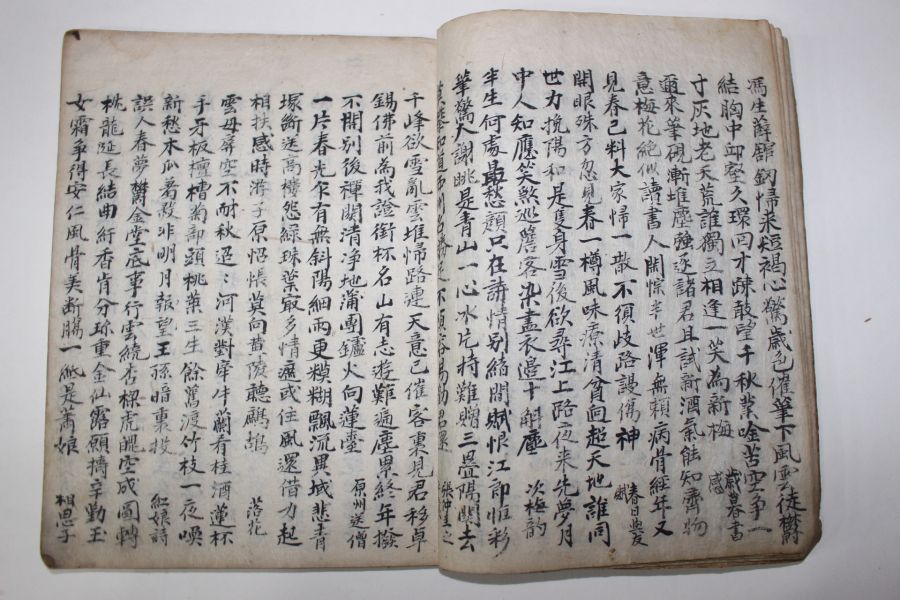 馮生薛館鋏歸來短褐心驚歲色催筆下風雲徒欝
結胸中邱壑久環回才踈敢望千秋業唫苦空爭一
寸灰地老天荒誰獨立相逢一笑為新梅 歲暮書感
邇來筆硯漸堆塵强逐諸君且試新酒氣能知賣物
意梅花絶似讀書人閑悰半世渾無賴病骨經年又
見春已料大家歸一散不須歧路謾傷神 春日與友
開眼殊方忽見春一樽風味療清貧向超天地誰同
世力挽陽和是隻身雪後欲尋江上路夜来先夢月
中人知應笑煞巡簷客染盡衣邊十斛塵 次梅韵
半生何處最愁顔只在詩情別緖間賦恨江郎惟彩
筆驚人謝眺是青山一心冰片持難贈三疊陽關去
千峰欲雪亂雲堆歸路連天意已催客裏見君移卓
錫佛前為我證銜杯名山有志遊難遍塵累終年撥
不開別後種閑清净地蒲團鑪火向蓮臺 原州送僧
一片春光乍有無斜陽細雨更糢糊飄沉異域悲青
塚斷送高樓怨綠珠葉㝡多情濕或住風還借力起
相扶感時滁子原怊悵莫向黄陵聽鷓鴣 落花
雲母屏空不耐秋迢迢河漢對牽牛蘭肴桂酒蓮杯
手牙板檀槽菊部頭桃葉三生餘舊渡竹枝一夜喚
新愁木瓜暑殺非明月報望王孫暗裏投 紅娘詩
誤人春夢欝金堂底事行雲繞杏樑虎魄空成圖轉
枕龍涎長結曲紆香肯分珎重金仙露願擣辛勤玉
女霜爭得安仁風骨美断膓一紙是蕭娘 相思子